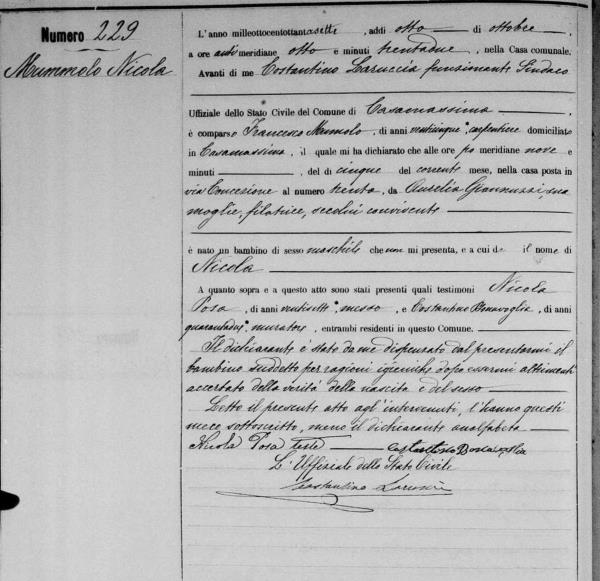 Numero 229
Mummolo Nicola
L'anno milleottocentottantasette, addì otto di ottobre,
a ore antimeridiane otto e minuti trentadue, nella Casa comunale.
Avanti di me Costantino Laruccia funzionante Sindaco
Uffiziale dello Stato Civile del Comune di Casamassima,
è comparso Francesco Mummolo, di anni venticinque, carpentiere domiciliato
in Casamassima, il quale mi ha dichiarato che alle ore po meridiane nove e
minuti, del dì cinque del corrente mese, nella casa posta in
via Concezione al numero trenta, da Aurelia Giannuzzi, sua
moglie, filatrice, secolui convivente
è nato un bambino di sesso maschile che non mi presenta, e a cui dà il nome di
Nicola
A quanto sopra e a questo atto sono stati presenti quali testimoni Nicola
Posa, di anni ventisette, messo, e Costantino Bonavoglia, di anni
quarantadue, muratore, entrambi residenti in questo Comune.
Il dichiarante è stato da me dispensato dal presentarmi il
bambino suddetto per ragioni igieniche dopo essermi altrimenti
accertato della verità della nascita e del sesso
Letto il presente atto agl'intervenuti, l'hanno questi
meco sottoscritto, meno il dichiarante analfabeta
Nicola Posa teste Costantino Bonavoglia
L'Uffiziale dello Stato Civile
Costantino Laruccia